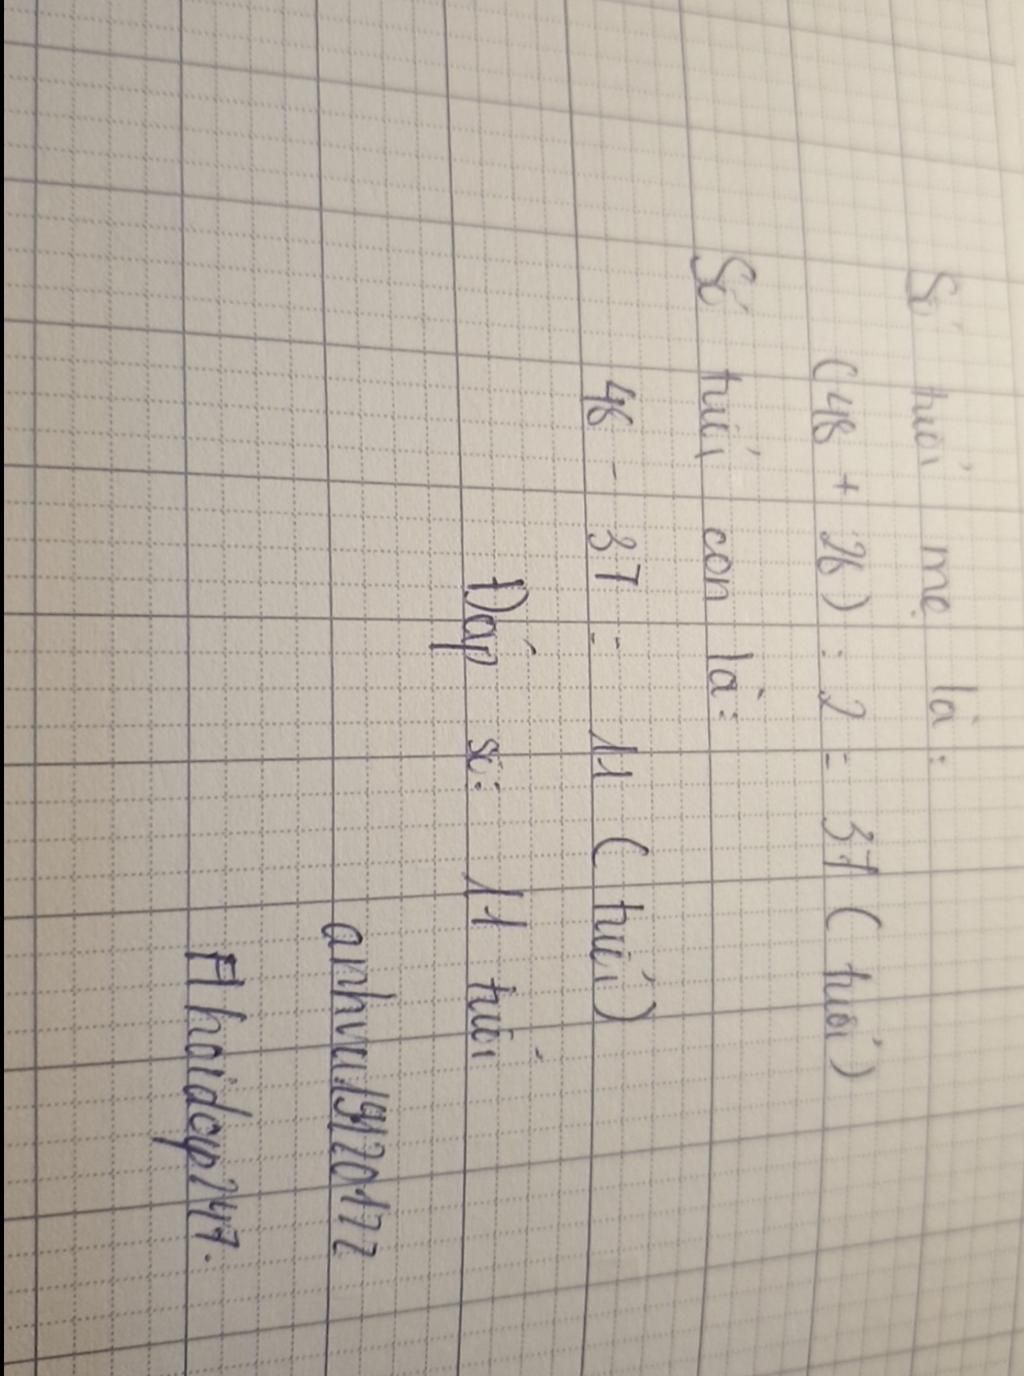 Số tuổi mẹ là:
(48 + 26) : 2 = 37 (tuổi)
Số tuổi con là:
48 - 37 = 11 (tuổi)
Đáp số: 11 tuổi
anhvu19120177
Hhoidap247.